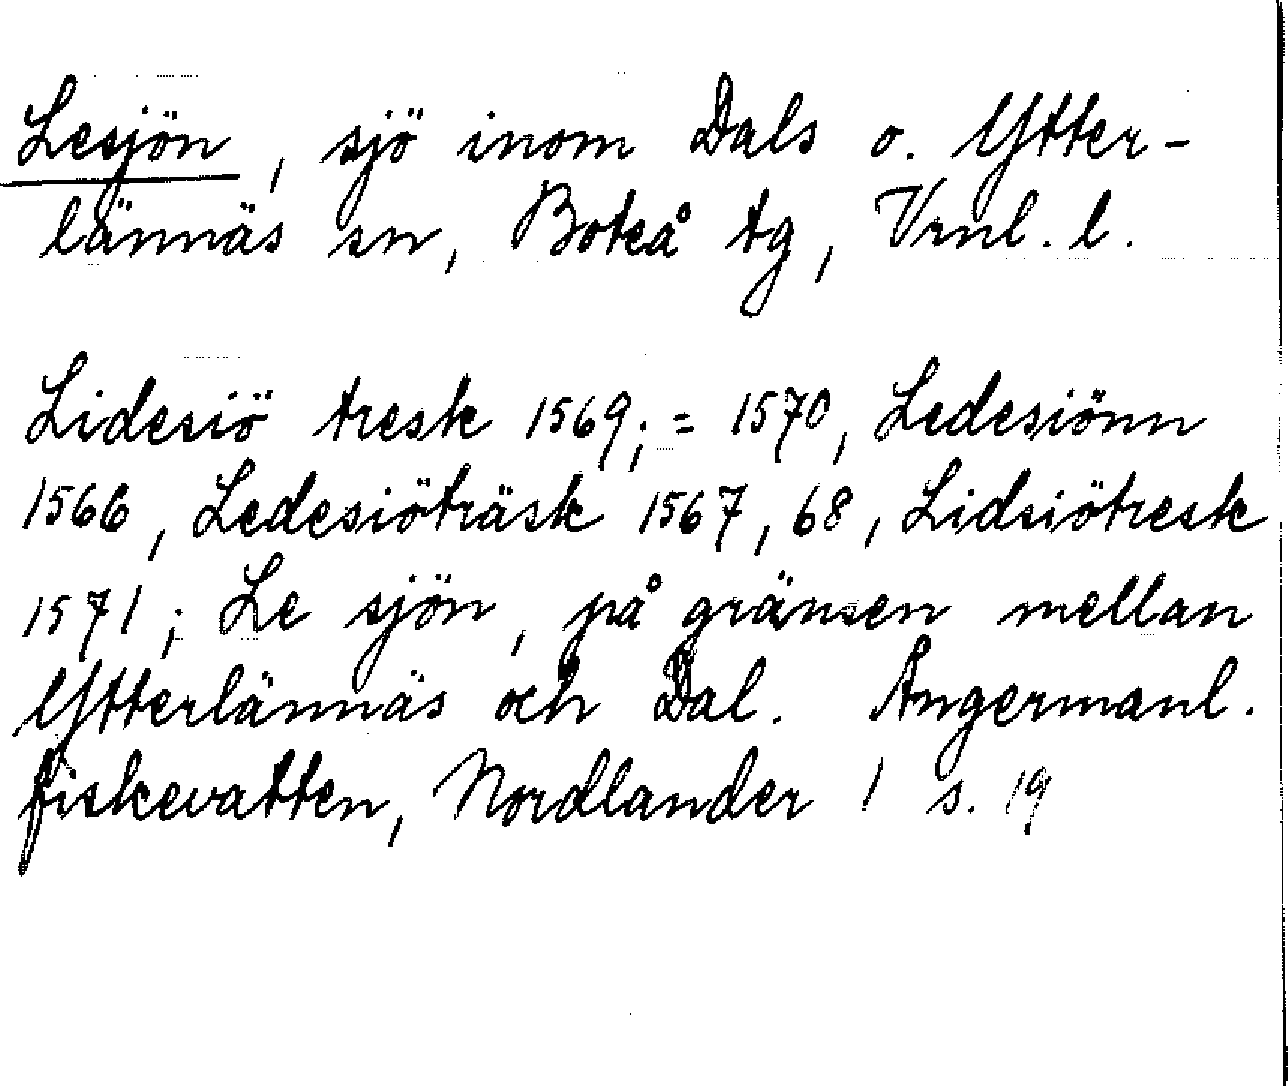 Lesjön, sjö inom Dals o. Ytter-
lännäs sn, Boteå tg, Vrnl. l.
Lidesiö tresk 1569; = 1570, Ledesiönn
1566, Ledesiöträsk 1567, 68, Lidsiötresk
1571; Le sjön, på gränsen mellan
Ytterlännäs och Dal. Ångermanl.
fiskevatten, Nordlander 1 s. 19